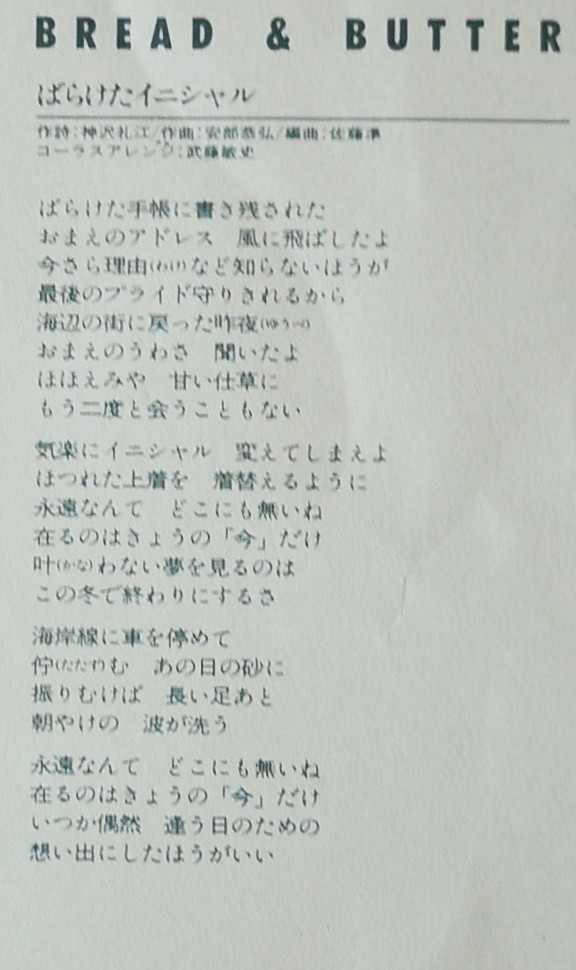 BREAD & BUTTER
ばらけたイニシャル
作詩:神沢礼江/作曲:安部恭弘/編曲:佐藤準
コーラスアレンジ:武藤敏史
ばらけた手帳に書き残された
おまえのアドレス　風に飛ばしたよ
今さら理由(わけ)など知らないほうが
最後のプライド守りきれるから
海辺の街に戻った昨夜(ゆうべ)
おまえのうわさ　聞いたよ
ほほえみや　甘い仕草に
もう二度と会うこともない
気楽にイニシャル　変えてしまえよ
ほつれた上着を　着替えるように
永遠なんて　どこにも無いね
在るのはきょうの「今」だけ
叶(かな)わない夢を見るのは
この冬で終わりにするさ
海岸線に車を停めて
佇(たたず)む　あの日の砂に
振りむけば　長い足あと
朝やけの　波が洗う
永遠なんて　どこにも無いね
在るのはきょうの「今」だけ
いつか偶然　逢う日のための
想い出にしたほうがいい